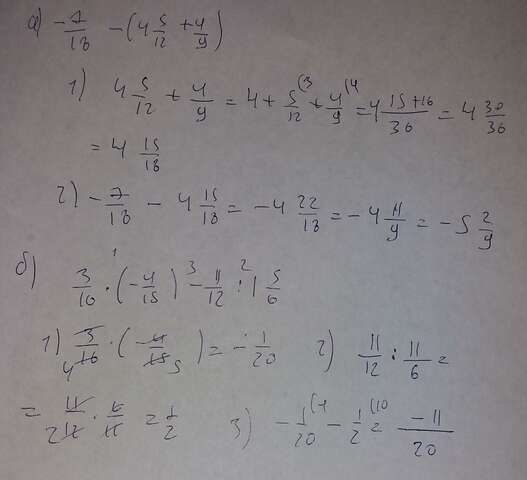 а) -7/18 - (4 5/12 + 4/9)
1) 4 5/12 + 4/9 = 4 + 5/12 (3 + 4/9 (4 = 4 15+16/36 = 4 30/36
= 4 15/18
2) -7/18 - 4 15/18 = -4 22/18 = -4 11/9 = -5 2/9
б) 3/16 ·1 (-4/15) -3 11/12 :2 1 5/6
1) 3/4 16 · (-4/15 5) = -1/20 2) 11/12 : 11/6 =
= 11/2 12 · 6/11 = 1/2 3) -1/20 (1 - 1/2 (10 = -11/20